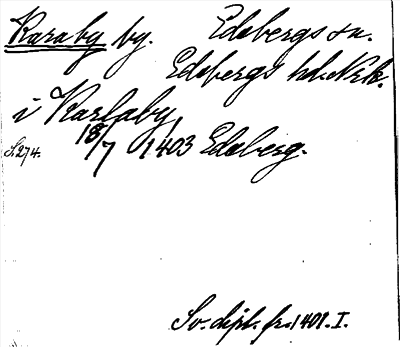 Karaby by. Edsbergs sn.
Edsbergs hd. Nrk.
i Karlaby
S. 274. 18/7 1403 Edsberg.
Sv. dipl. fr. 1401. I.